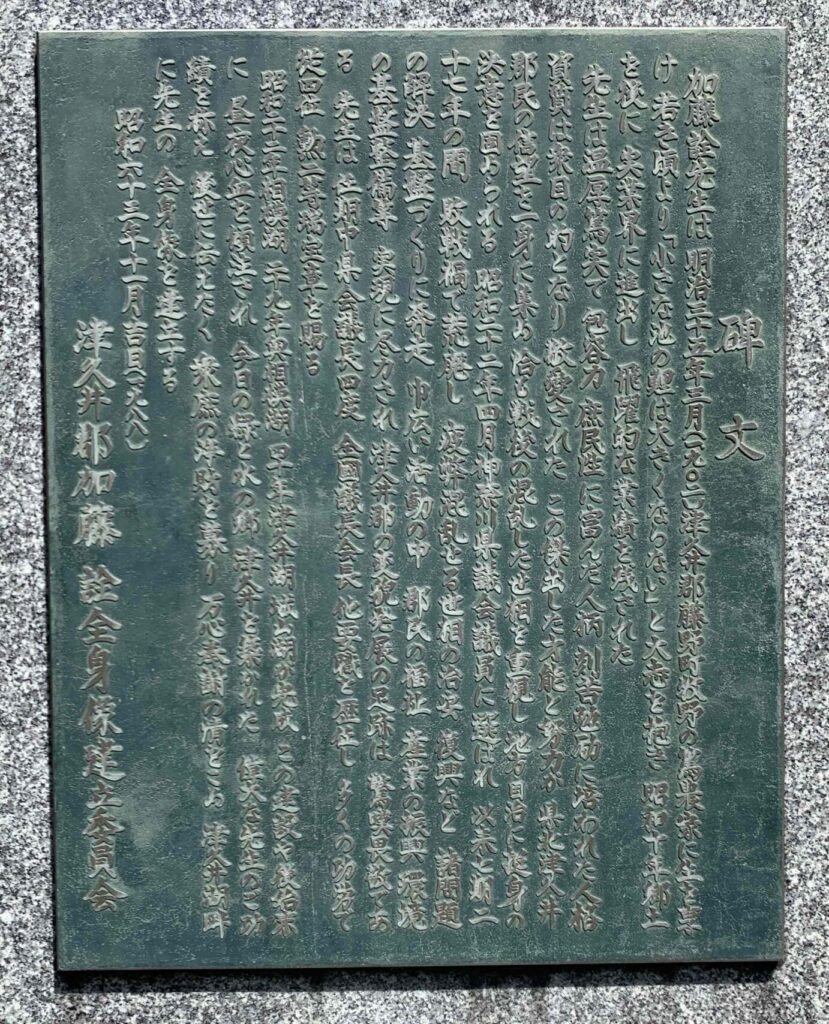 碑文
加藤詮先生は 明治三十五年三月(一九〇二)津久井郡藤野町牧野の篤農家に生を享
け 若き頃より「小さな池の鯉は大きくならない」と大志を抱き 昭和十年郷土
を後に 実業界に進出し 飛躍的な業績を残された
先生は温厚篤実で 包容力 庶民性に富んだ人柄 刻苦勉励に培われた人格
資質は衆目の的となり 敬愛された この傑出した才能と努力が 県北津久井
郡民の信望を一身に集め 恰も敗後の混乱した世相を直視し 地方自治に挺身の
決意を固められる 昭和二十二年四月神奈川県議会議員に選ばれ 以来七期二
十七年の間 敗戦禍で荒廃し 疲弊混乱とる世相の治安 復興など 諸問題
の解決 基盤づくりに奔走 巾広い活動の中 郡民の福祉 産業の振興 環境
の基盤整備等 実現に尽力され 津久井郡の変貌発展の足跡は 驚嘆畏敬であ
る 先生は 任期中県会議長四度 全国議長会長 化要職を歴任し 多くの功労で
従四位 勲二等瑞宝章を賜る
昭和二十二年相模湖 三十九年奥相模湖 四十年津久井湖 城山湖が完成 この建設や後治水
に 昼夜心血を傾注され 今日の緑と水の郷 津久井を築かれた 偉大な先生のご功
績を称え 後世に伝えたく 衆庶の浄財を募り 万心感謝の情をこめ 津久井湖畔
に先生の 全身像を建立する
昭和六十三年十一月吉日(一九八八)
津久井郡加藤 詮全身像建立委員会